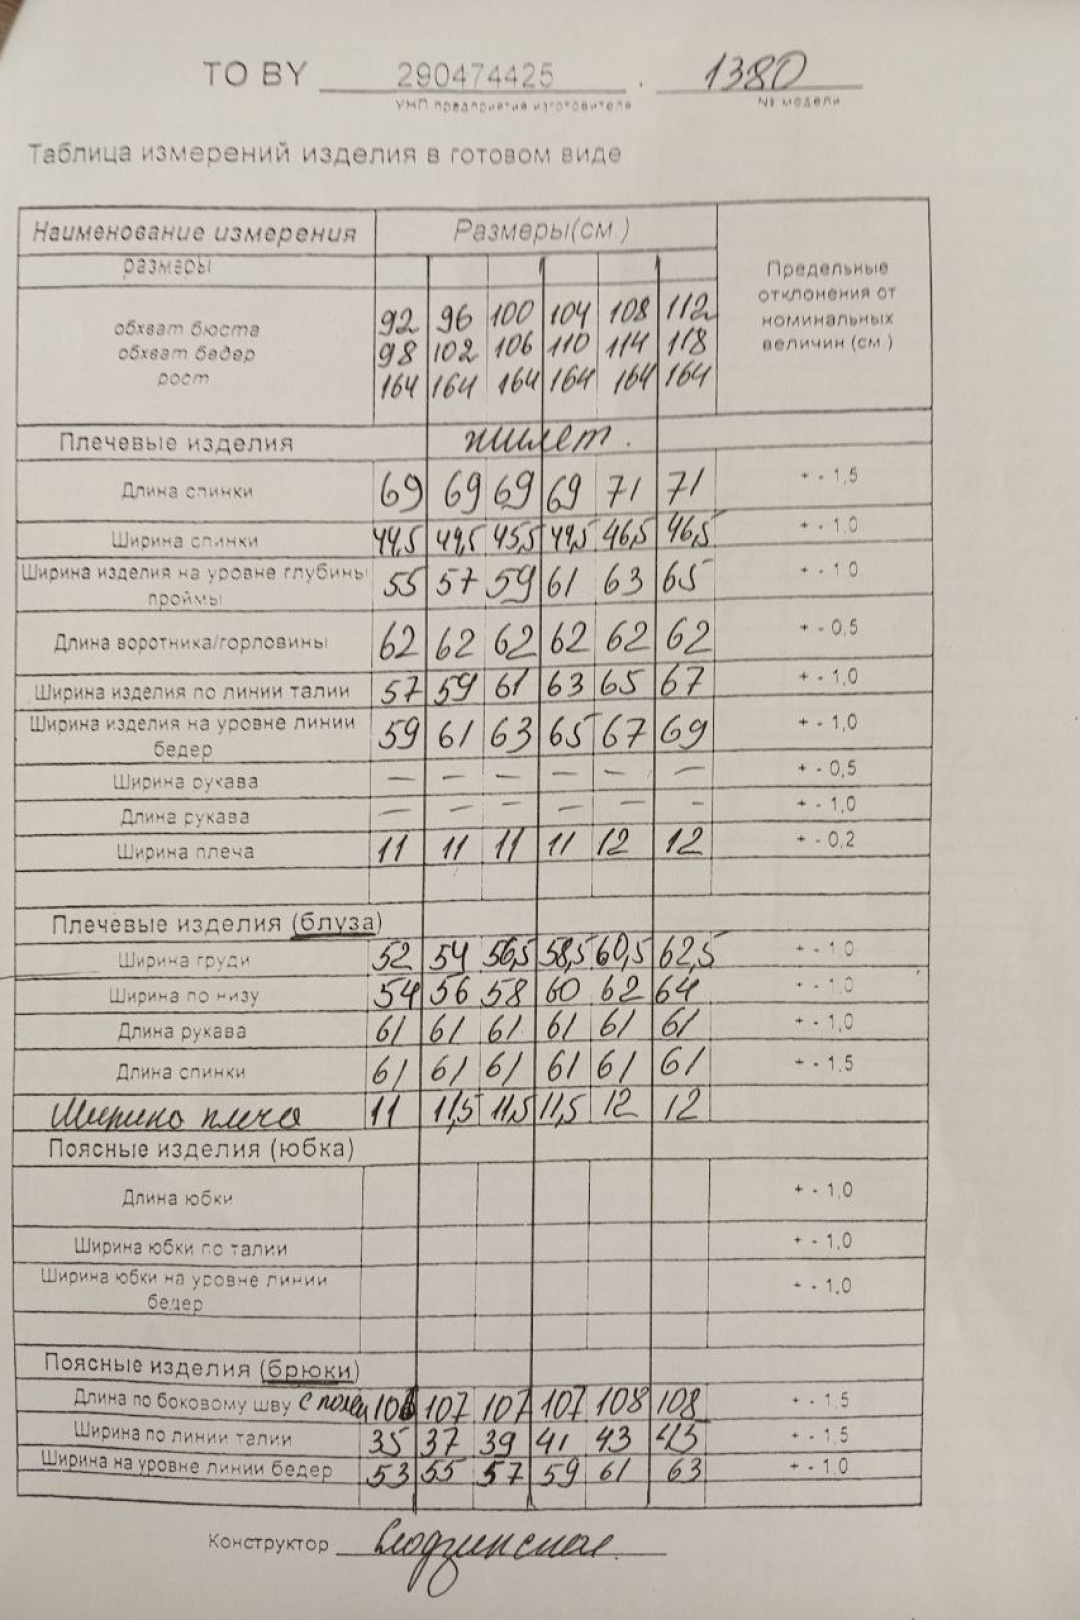 ТО BY 290474425 . 1380
УНП предприятия изготовителя № модели
Таблица измерений изделия в готовом виде
Наименование измерения Размеры(см.) Предельные отклонения от номинальных величин (см.)
размеры
обхват бюста 92 96 100 104 108 112
обхват бедер 98 102 106 110 114 118
рост 164 164 164 164 164 164
Плечевые изделия жилет.
Длина спинки 69 69 69 69 71 71 + - 1,5
Ширина спинки 44,5 44,5 45,5 44,5 46,5 46,5 + - 1,0
Ширина изделия на уровне глубины проймы 55 57 59 61 63 65 + - 1 0
Длина воротника/горловины 62 62 62 62 62 62 + - 0,5
Ширина изделия по линии талии 57 59 61 63 65 67 + - 1,0
Ширина изделия на уровне линии бедер 59 61 63 65 67 69 + - 1,0
Ширина рукава — — — — — — + - 0,5
Длина рукава — — — — — - + - 1,0
Ширина плеча 11 11 11 11 12 12 + - 0,2
Плечевые изделия (блуза)
Ширина груди 52 54 56,5 58,5 60,5 62,5 + - 1,0
Ширина по низу 54 56 58 60 62 64 + - 1,0
Длина рукава 61 61 61 61 61 61 + - 1,0
Длина спинки 61 61 61 61 61 61 + - 1,5
Ширина плеча 11 11,5 11,5 11,5 12 12
Поясные изделия (юбка)
Длина юбки + - 1,0
Ширина юбки по талии + - 1,0
Ширина юбки на уровне линии бедер + - 1,0
Поясные изделия (брюки)
Длина по боковому шву с 107 107 107 108 108 + - 1,5
Ширина по линии талии 35 37 39 41 43 43 + - 1,5
Ширина на уровне линии бедер 53 55 57 59 61 63 + - 1,0
Конструктор